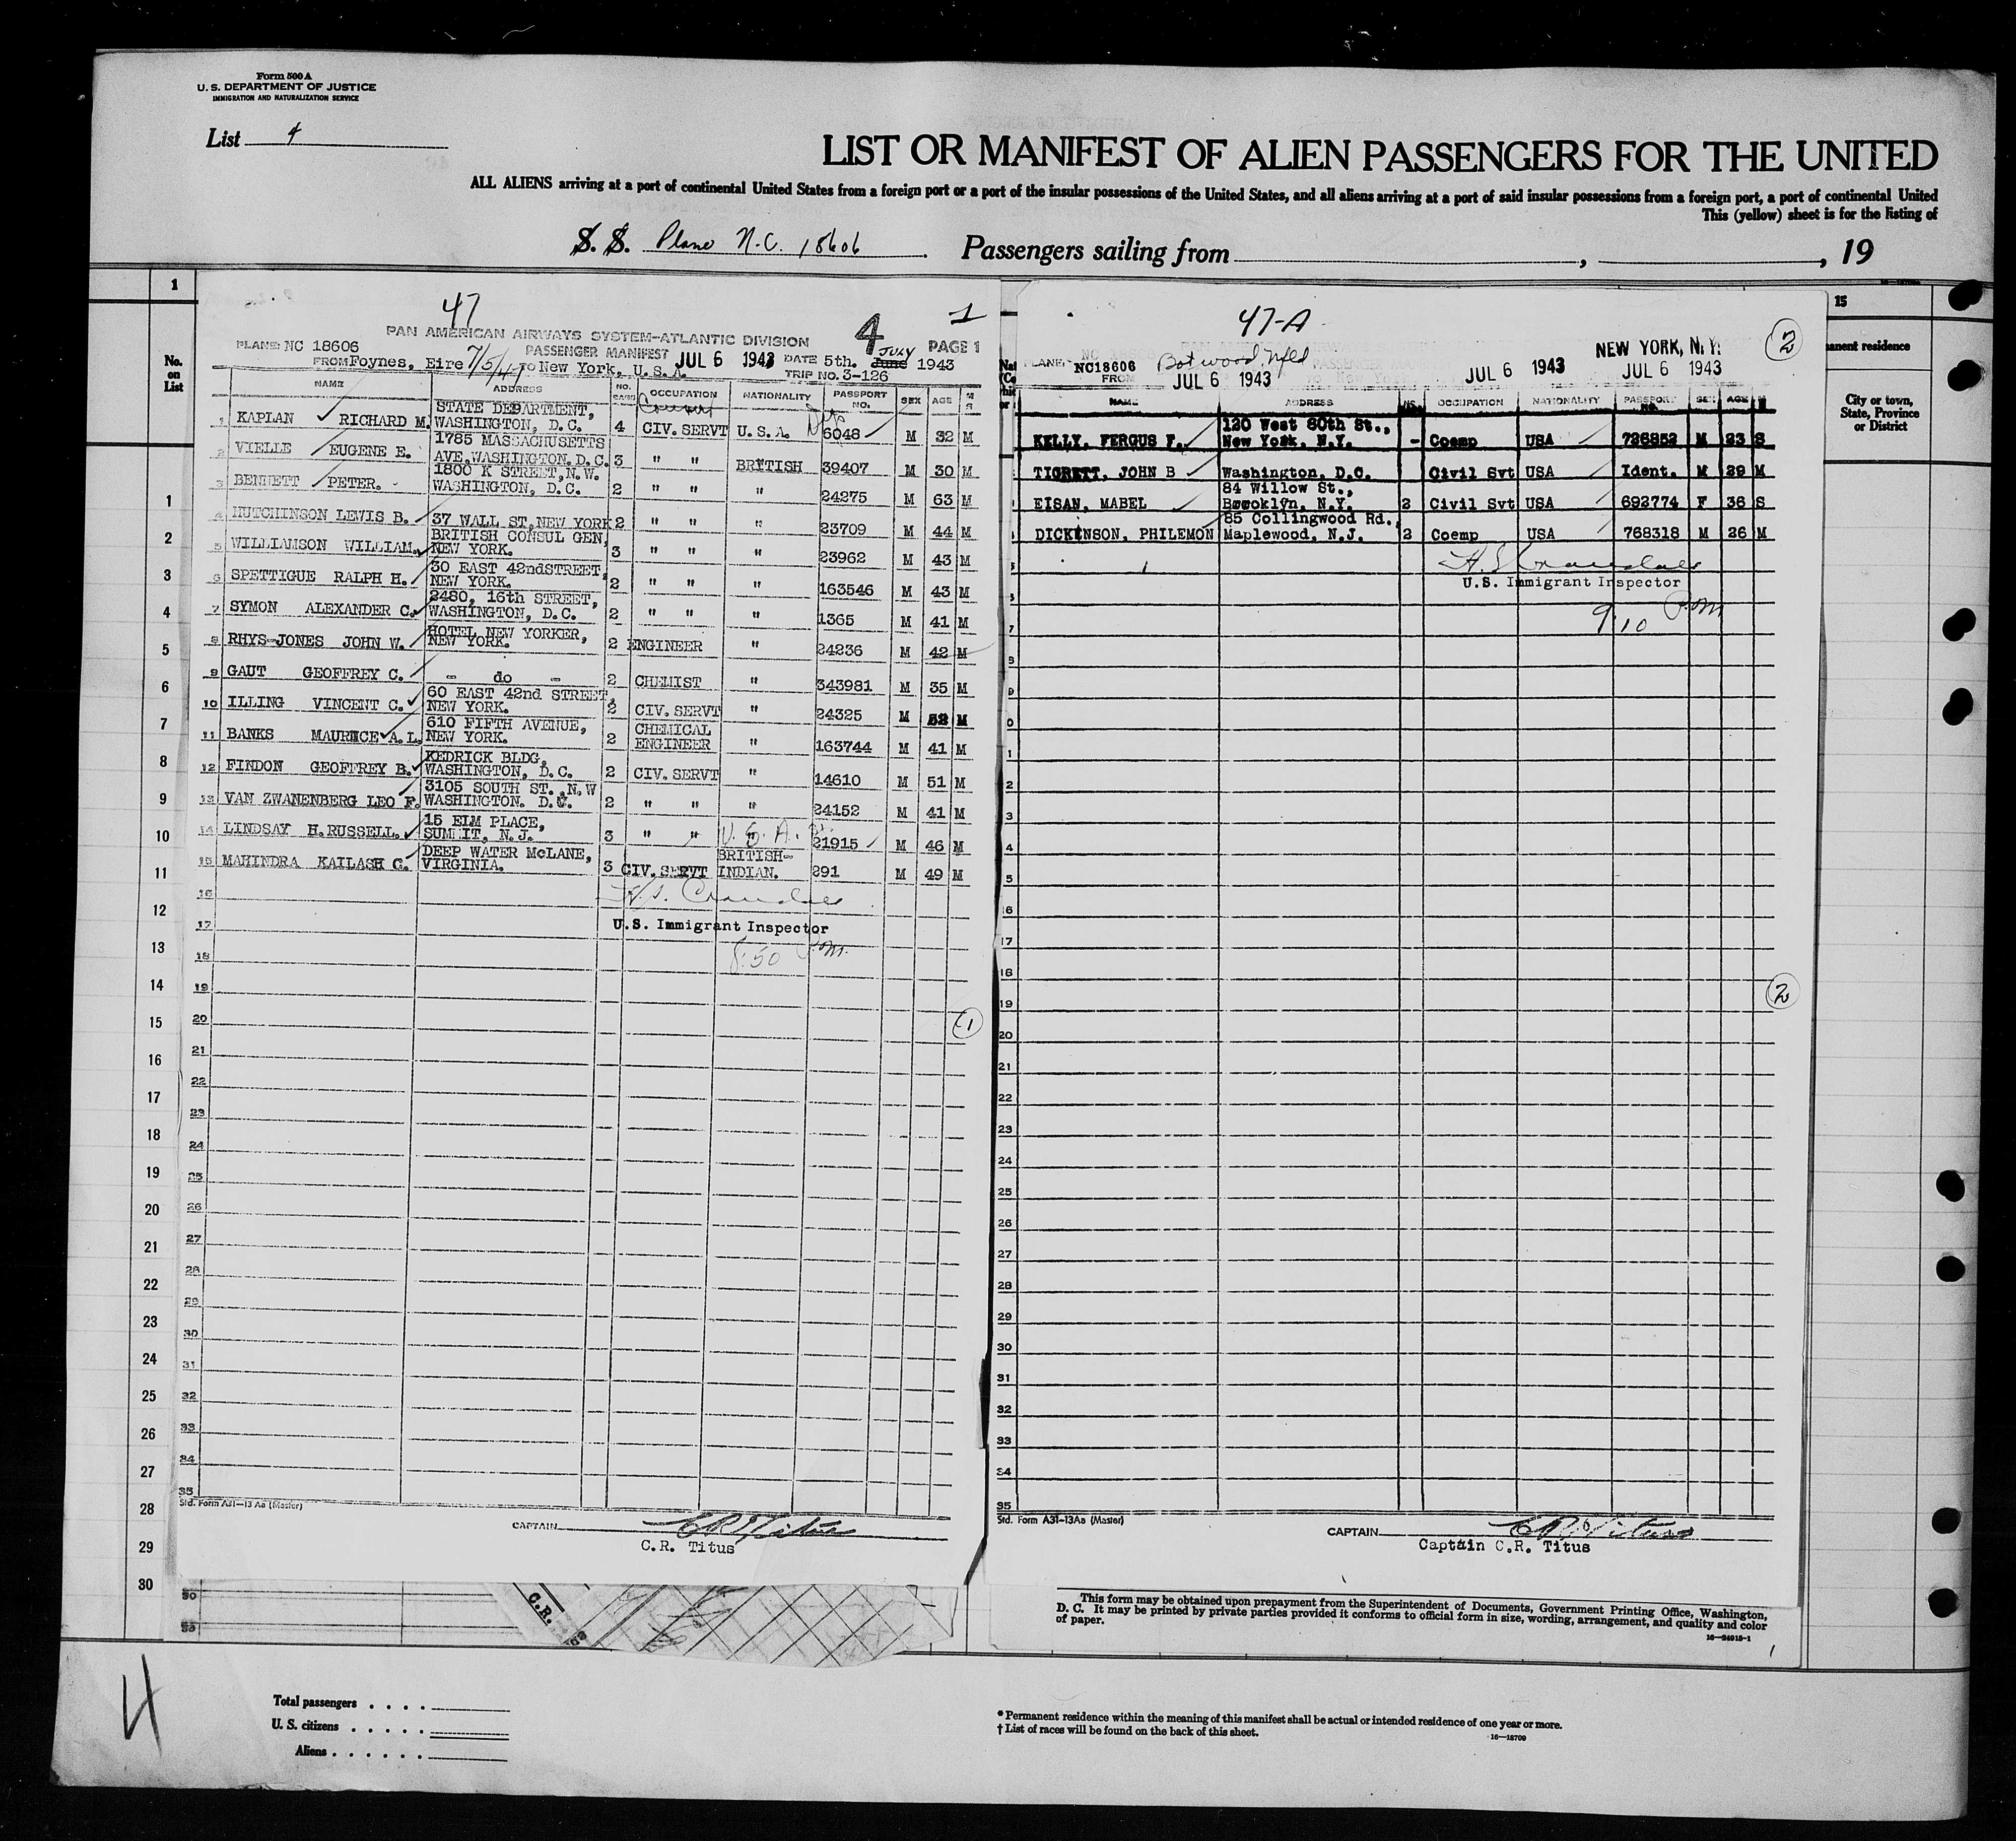 Form 500 A
U. S. DEPARTMENT OF JUSTICE
IMMIGRATION AND NATURALIZATION SERVICE
List 4
LIST OR MANIFEST OF ALIEN PASSENGERS FOR THE UNITED
ALL ALIENS arriving at a port of continental United States from a foreign port or a port of the insular possessions of the United States, and all aliens arriving at a port of said insular possessions from a foreign port, a port of continental United
This (yellow) sheet is for the listing of
S. S. Plane N.C. 18606 . Passengers sailing from , , 19
1
No. on List
47
1
PAN AMERICAN AIRWAYS SYSTEM-ATLANTIC DIVISION 4 PAGE 1
PLANE: NC 18606 PASSENGER MANIFEST JUL 6 1943 DATE 5th. JULY June 1943
FROM Foynes, Eire 7/5/47 TO New York, U.S.A. TRIP NO. 3-126
NAME ADDRESS NO. BAGS OCCUPATION NATIONALITY PASSPORT NO. SEX AGE M S
1 KAPLAN RICHARD M. STATE DEPARTMENT, WASHINGTON, D. C. 4 CIV. SERVT U.S.A. 6048 M 32 M
2 VIELLE EUGENE E. 1785 MASSACHUSETTS AVE.WASHINGTON.D.C. 3 " " BRITISH 39407 M 30 M
3 BENNETT PETER. 1800 K STREET,N.W. WASHINGTON, D. C. 2 " " " 24275 M 63 M
4 HUTCHINSON LEWIS B. 37 WALL ST,NEW YORK 2 " " " 23709 M 44 M
5 WILLIAMSON WILLIAM. BRITISH CONSUL GEN, NEW YORK. 3 " " " 23962 M 43 M
6 SPETTIGUE RALPH H. 30 EAST 42ndSTREET, NEW YORK. 2 " " " 163546 M 43 M
7 SYMON ALEXANDER C. 2480, 16th STREET, WASHINGTON, D. C. 2 " " " 1365 M 41 M
8 RHYS-JONES JOHN W. HOTEL NEW YORKER, NEW YORK. 2 ENGINEER " 24236 M 42 M
9 GAUT GEOFFREY C. - do - 2 CHEMIST " 343981 M 35 M
10 ILLING VINCENT C. 60 EAST 42nd STREET, NEW YORK. 2 CIV. SERVT " 24325 M 52 M
11 BANKS MAURICE A.L. 610 FIFTH AVENUE, NEW YORK. 2 CHEMICAL ENGINEER " 163744 M 41 M
12 FINDON GEOFFREY B. KEDRICK BLDG, WASHINGTON, D. C. 2 CIV. SERVT " 14610 M 51 M
13 VAN ZWANENBERG LEO F. 3105 SOUTH ST.,N.W WASHINGTON. D.C. 2 " " " 24152 M 41 M
14 LINDSAY H.RUSSELL. 15 ELM PLACE, SUMMIT, N. J. 3 " " U.S.A. 21915 M 46 M
15 MAHINDRA KAILASH C. DEEP WATER McLANE, VIRGINIA. 3 CIV. SERVT BRITISH-INDIAN. 291 M 49 M
16
17 U.S. Immigrant Inspector
18 8:50 P.M.
19
20
21
22
23
24
25
26
27
28
29
30
31
32
33
34
35
1
Std. Form A31-13 Aa (Master)
CAPTAIN C R Titus
C.R. Titus
47-A
2
NEW YORK, N.Y.
PLANE: NC18606 Botwood Nfld JUL 6 1943 JUL 6 1943
FROM JUL 6 1943
NAME ADDRESS NO. OCCUPATION NATIONALITY PASSPORT NO. SEX AGE M
KELLY, FERGUS F. 120 West 80th St., New York, N.Y. - Coemp USA 726852 M 23 S
TIGRETT, JOHN B Washington, D.C. Civil Svt USA Ident. M 29 M
EISAN, MABEL 84 Willow St., Brooklyn, N.Y. 2 Civil Svt USA 692774 F 36 S
DICKINSON, PHILEMON 85 Collingwood Rd., Maplewood, N.J. 2 Coemp USA 768318 M 26 M
U.S. Immigrant Inspector
9:10 P.M
16
17
18
19
20
21
22
23
24
25
26
27
28
29
30
31
32
33
34
35
2
Std. Form A31-13Aa (Master)
CAPTAIN C R Titus
Captain C.R. Titus
15
anent residence
City or town, State, Province or District
1
2
3
4
5
6
7
8
9
10
11
12
13
14
15
16
17
18
19
20
21
22
23
24
25
26
27
28
29
30
C.R.
This form may be obtained upon prepayment from the Superintendent of Documents, Government Printing Office, Washington,
D. C. It may be printed by private parties provided it conforms to official form in size, wording, arrangement, and quality and color
of paper.
16-24915-1
4
Total passengers . . . .
U. S. citizens . . . . .
Aliens . . . . . .
* Permanent residence within the meaning of this manifest shall be actual or intended residence of one year or more.
† List of races will be found on the back of this sheet.
16-18709